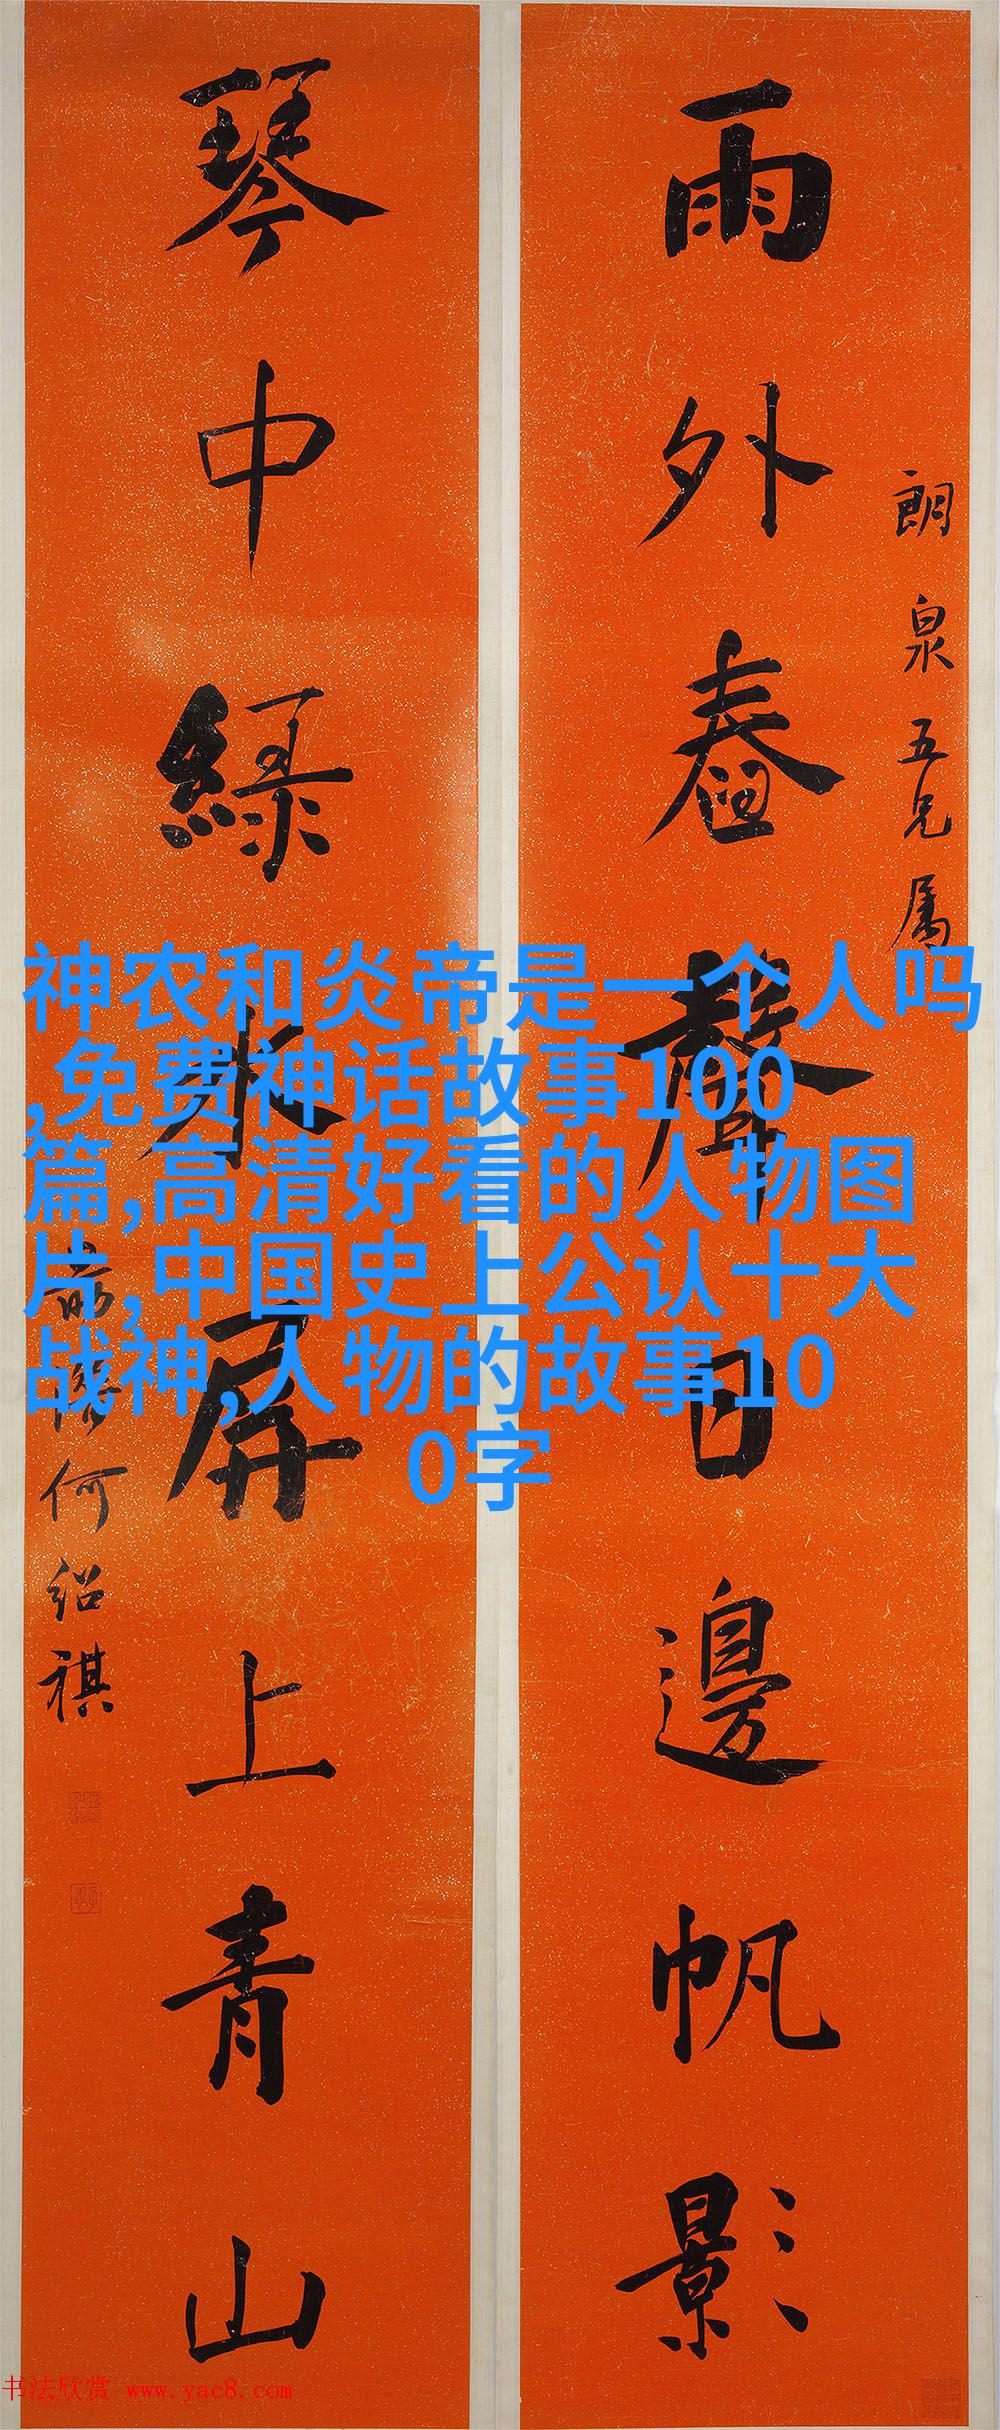 雨外舂聲日邊帆影
朗泉五兄属
琴中綠水屏上青山
何紹祺
神农和炎帝是一个人吗
,免费神话故事100
篇,高清好看的人物图
片,中国史上公认十大
战神,人物的故事10
0字
书法欣赏 www.yac8.com